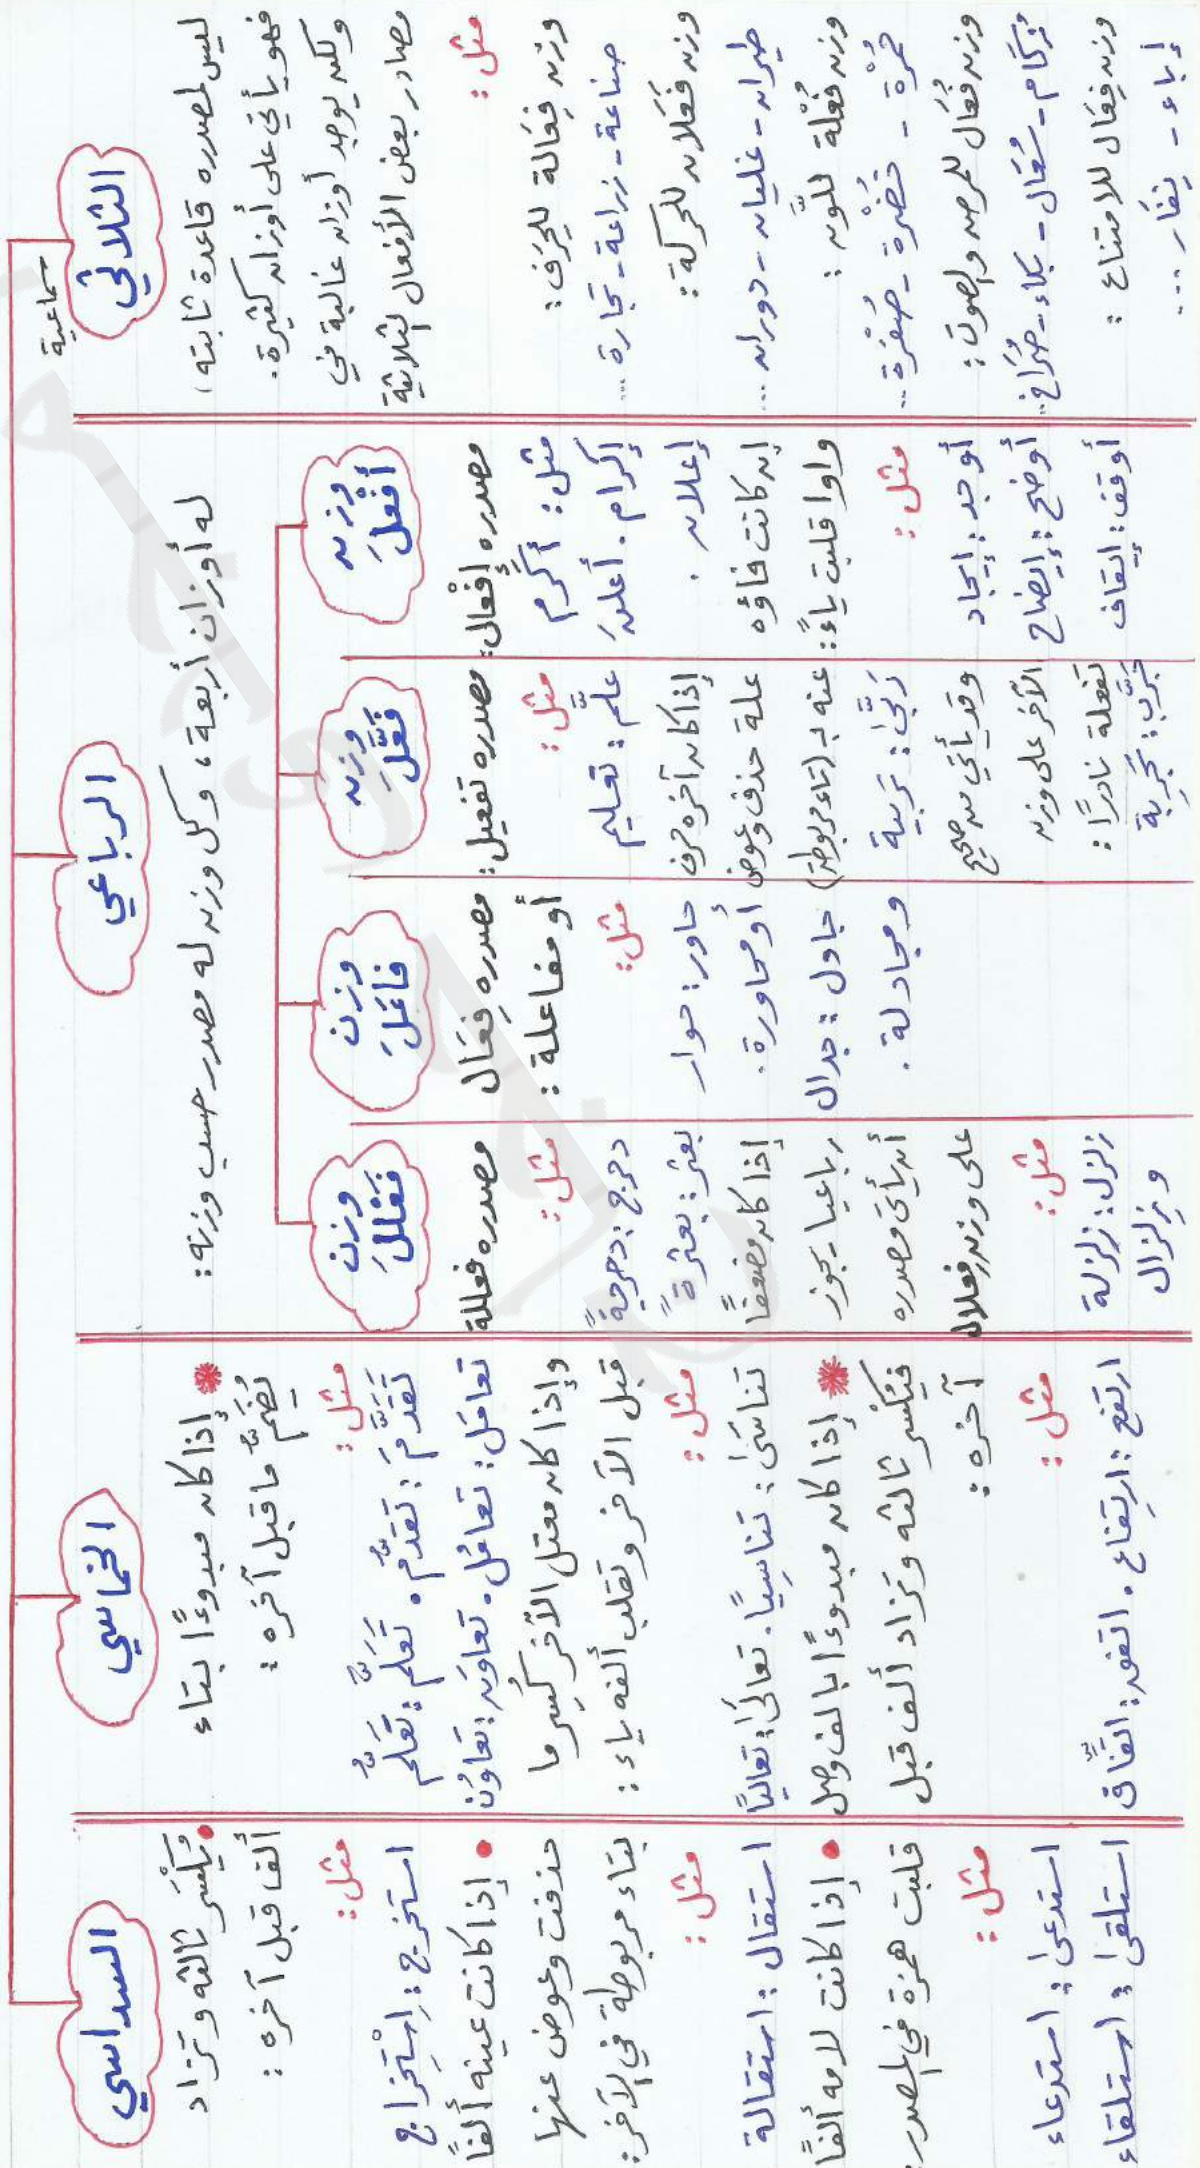 الثلاثي
سماعية
ليس لمصدره قاعدة ثابتة،
فهو يأتي على أوزان كثيرة.
ولكن يوجد أوزان غالبة في
مصادر بعض الأفعال الثلاثية
مثل:
وزن فِعَالة للحِرَف:
صناعة - زراعة - تجارة ...
وزن فَعَلان للحركة:
طيران - غليان - دوران ...
وزن فُعْلة للَّون:
حُمْرة - خُضْرة - صُفْرة ...
وزن فُعَال للمرض والصوت:
زُكَام - سُعَال - بكاء - صُرَاخ ..
وزن فِعَال للامتناع:
إباء - نِفَار ....
الرباعي
له أوزان أربعة، وكل وزن له مصدر حسب وزنه:
وزن
أَفْعَلَ
مصدره إِفْعال:
مثل: أكرم
إكرام. أعلنَ
إعلان.
إن كانت فاؤه
واوا قلبت ياءً:
مثل:
أوجد: إيجاد
أوضح: إيضاح
أوقف: إيقاف
وزن
فَعَّلَ
مصدره تفعيل:
مثل:
علَّم: تعليم
إذا كان آخره حرف
علة حذف وعوض
عنه بـ (تاء مربوطة)
رَبَّىٰ: تربية
وقد يأتي من صحيح
الآخر على وزن
تفعلة نادرًا:
جَرَّب: تَجْرِبة
وزن
فاعَلَ
مصدره فِعَال
أو مفاعلة:
مثل:
حاور: حوار
أو محاورة.
جادل: جدال
ومجادلة.
وزن
فَعْلَلَ
مصدره فعللة
مثل:
دحرج: دحرجةً
بعثر: بعثرةً
إذا كان مضعفًا
رباعيا يجوز
أن يأتي مصدره
على وزن فعلال
مثل:
زلزل: زلزلة
وزِلزال
الخماسي
إذا كان مبدوءًا بتاء
يُضَمُّ ما قبل آخره:
مثل:
تَقَدَّمَ: تقدُّم. تَعَلَّمَ: تَعَلُّم
تعامَل: تعامُل. تعاوَن: تعاوُن
وإذا كان معتل الآخر كُسِر ما
قبل الآخر وتقلب ألفه ياء:
مثل:
تناسَىٰ: تناسِيًا. تعالَىٰ: تعاليًا
إذا كان مبدوءًا بالف وصل
فيُكْسر ثالثه وتزاد ألف قبل
آخره:
مثل:
ارتفع: ارتِفاع. اتفق: اتِّفاق
السداسي
يُكْسَر ثالثه وتزاد
ألف قبل آخره:
مثل:
استخرج: اسْتِخراج
إذا كانت عينه ألفًا
حذفت وعوض عنها
بتاء مربوطة في الآخر:
مثل:
استقال: استقالة
إذا كانت لامه ألفًا
قلبت همزة في المصدر:
مثل:
استدعىٰ: استدعاء
استلقىٰ: استلقاء